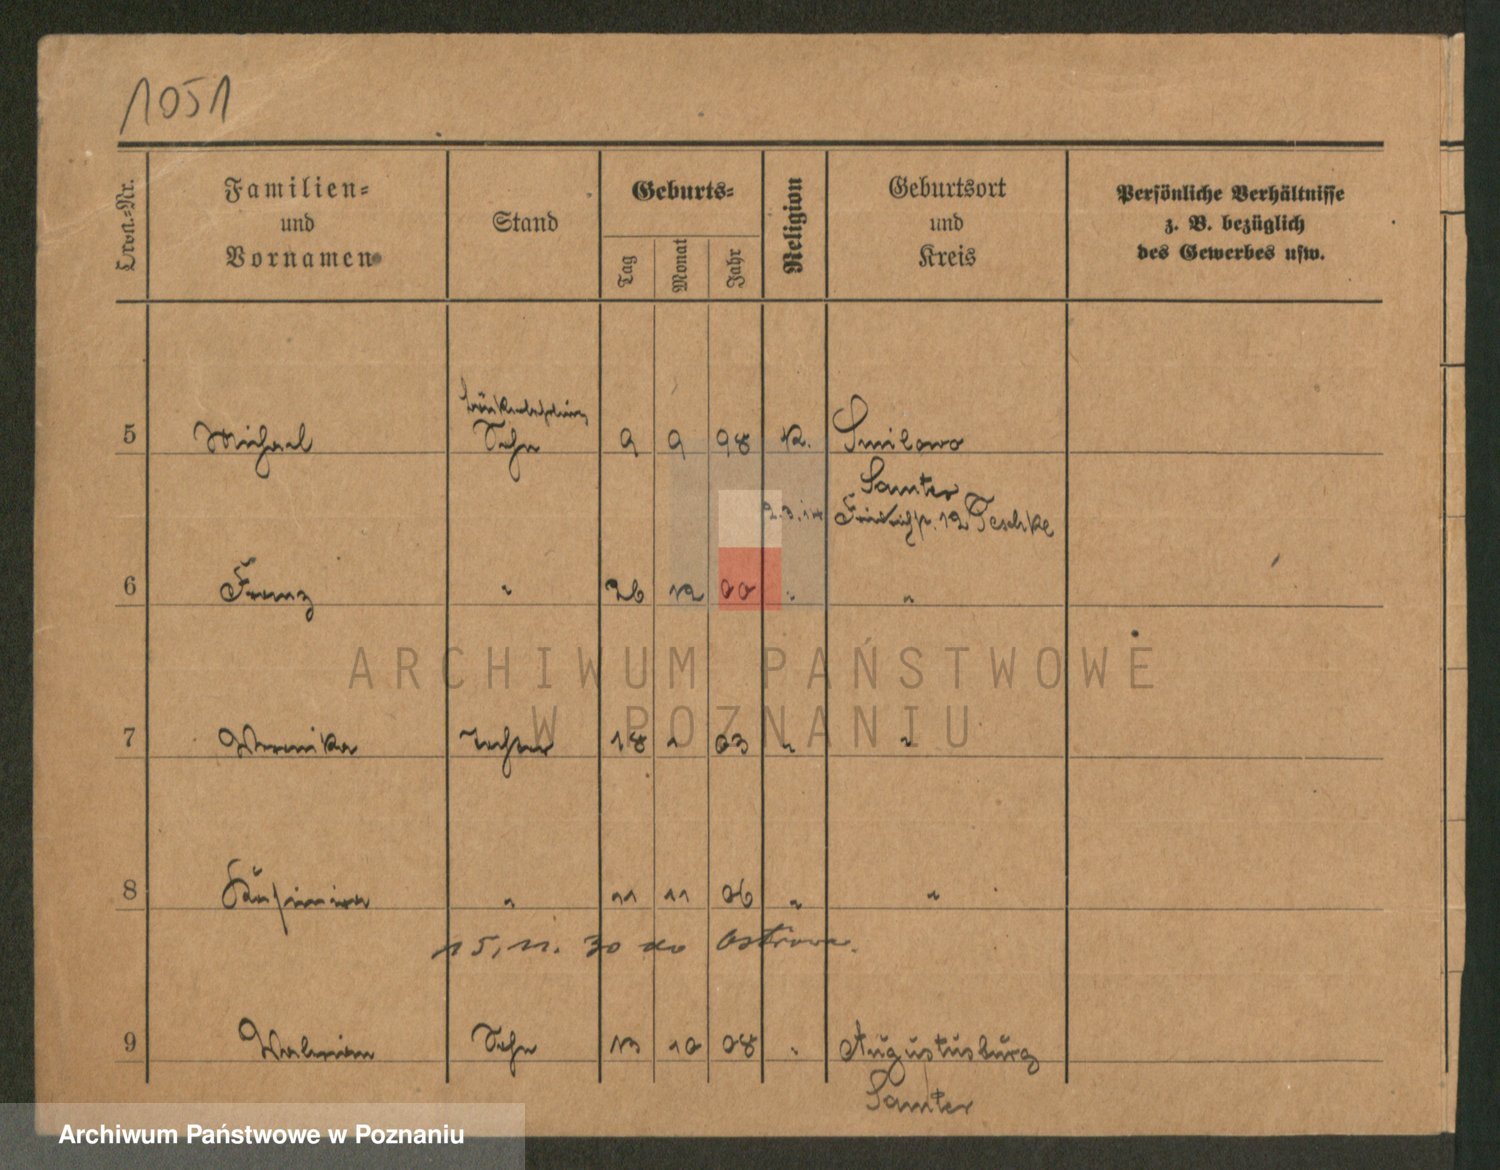 1051
Ordn.-Nr.
Familien-
und
Vornamen
Stand
Geburts-
Tag
Monat
Jahr
Religion
Geburtsort
und
Kreis
Persönliche Verhältnisse
z. B. bezüglich
des Gewerbes usw.
5 Michael Sohn 9 9 98 K. Smilowo
Samter
12 Teschke
6 Franz " 26 12 00 " "
ARCHIWUM PAŃSTWOWE
W POZNANIU
7 Veronika Tochter 18 1 03 " "
8 Kasimira " 11 11 06 " "
15, 11. 30 do Ostrowa.
9 Valerian Sohn 13 10 08 " Augustusburg
Samter
Archiwum Państwowe w Poznaniu